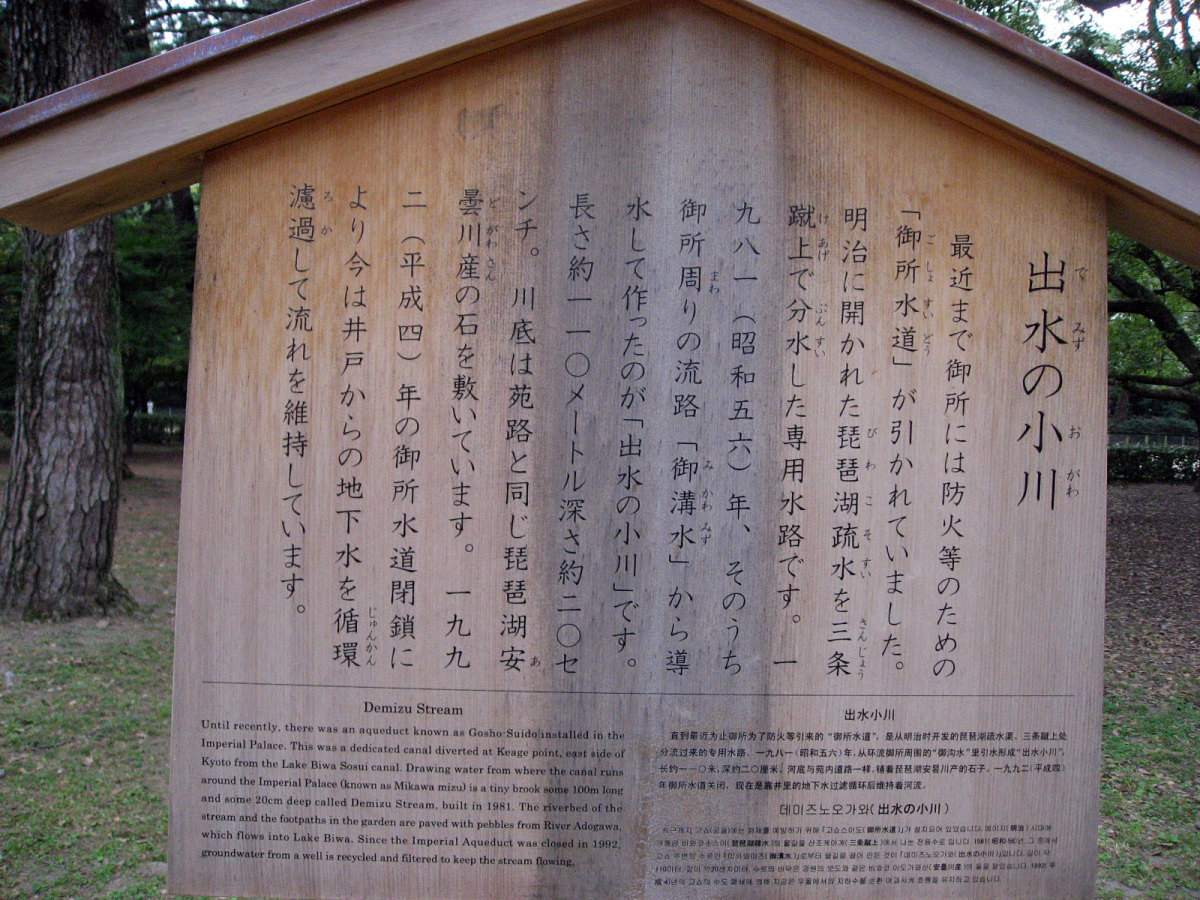 で みず お がわ
出水の小川
最近まで御所には防火等のための
ご しょ すい どう
「御所水道」が引かれていました。
び わ こ そ すい さんじょう
明治に開かれた琵琶湖疏水を三条
け あげ ぶん すい
蹴上で分水した専用水路です。一
九八一(昭和五六)年、そのうち
まわ み かわ みず
御所周りの流路「御溝水」から導
水して作ったのが「出水の小川」です。
長さ約一一〇メートル深さ約二〇セ
あ
ンチ。川底は苑路と同じ琵琶湖安
ど がわ さん
曇川産の石を敷いています。一九九
二(平成四)年の御所水道閉鎖に
じゅんかん
より今は井戸からの地下水を循環
ろ か
濾過して流れを維持しています。
Demizu Stream
Until recently, there was an aqueduct known as Gosho-Suido installed in the
Imperial Palace. This was a dedicated canal diverted at Keage point, east side of
Kyoto from the Lake Biwa Sosui canal. Drawing water from where the canal runs
around the Imperial Palace (known as Mikawa mizu) is a tiny brook some 100m long
and some 20cm deep called Demizu Stream, built in 1981. The riverbed of the
stream and the footpaths in the garden are paved with pebbles from River Adogawa,
which flows into Lake Biwa. Since the Imperial Aqueduct was closed in 1992,
groundwater from a well is recycled and filtered to keep the stream flowing.
出水小川
直到最近为止御所为了防火等引来的“御所水道”,是从明治时开发的琵琶湖疏水渠、三条蹴上处
分流过来的专用水路。一九八一(昭和五六)年,从环流御所周围的“御沟水”里引水形成“出水小川”,
长约一一〇米,深约二〇厘米。河底与苑内道路一样,铺着琵琶湖安昙川产的石子。一九九二(平成四)
年御所水道关闭,现在是靠井里的地下水过滤循环后维持着河流。
데미즈노오가와(出水の小川)
최근까지 고쇼(궁궐)에는 화재를 예방하기 위해 「고쇼스이도(御所水道)」가 설치되어 있었습니다. 메이지(明治) 시대에